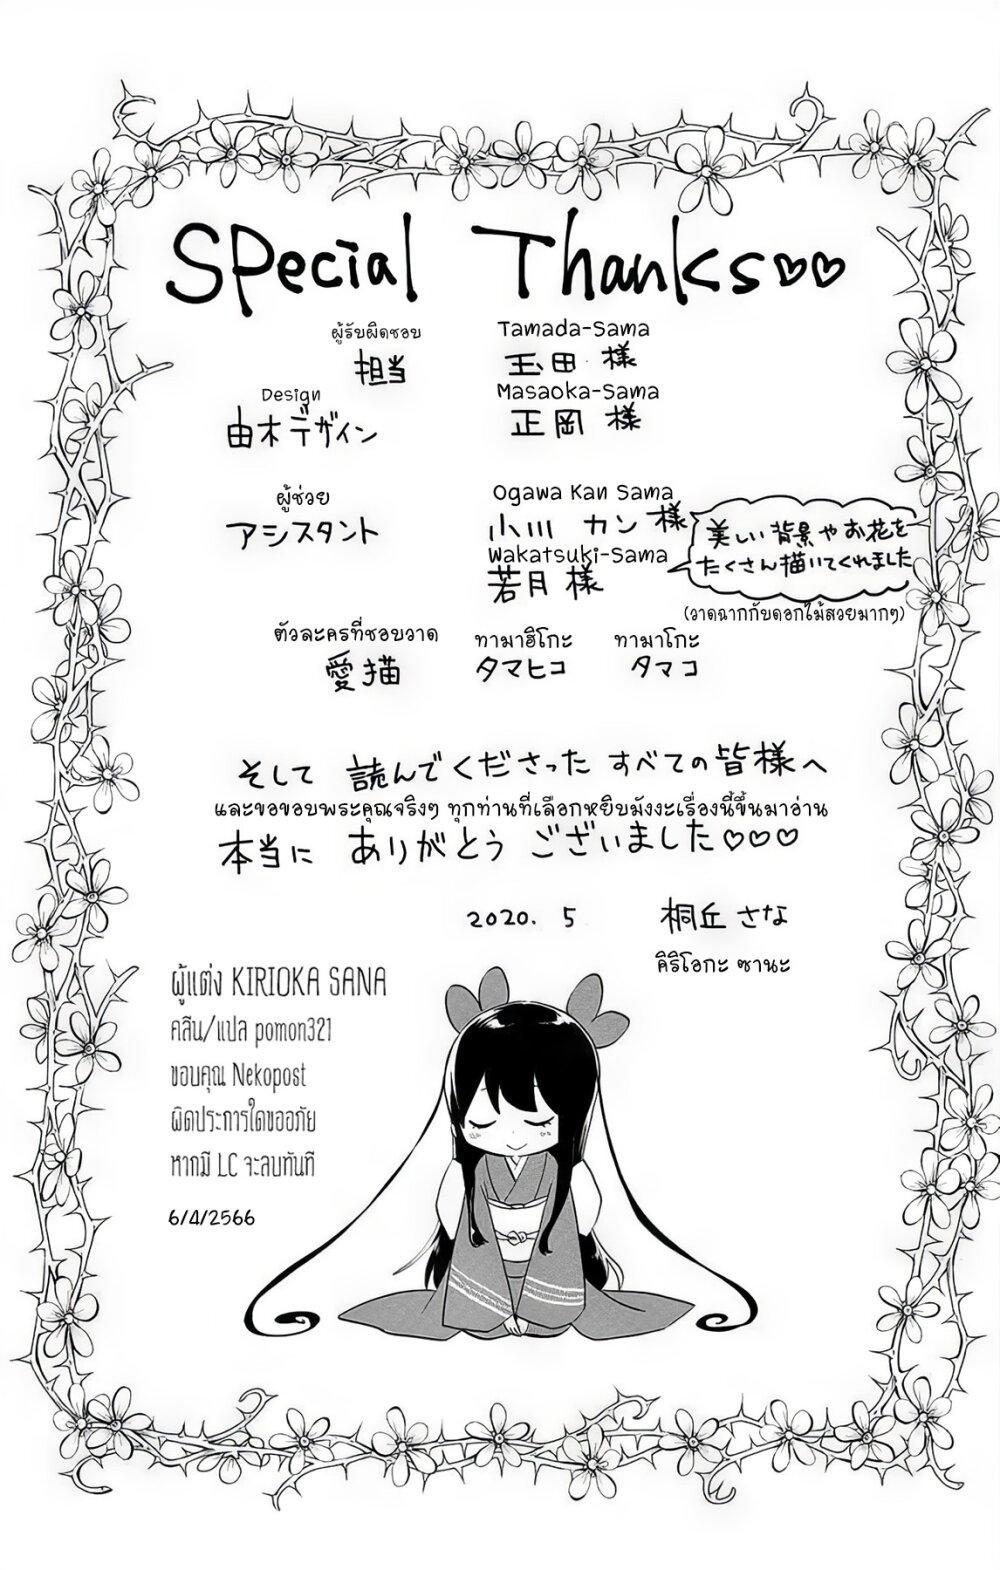 Special Thanks♡♡
ผู้รับผิดชอบ Tamada-Sama
担当 玉田 様
Design Masaoka-Sama
由木デザイン 正岡 様
ผู้ช่วย Ogawa Kan Sama
アシスタント 小川 カン 様
Wakatsuki-Sama
若月 様
美しい背景やお花を
たくさん描いてくれました
(วาดฉากกับดอกไม้สวยมากๆ)
ตัวละครที่ชอบวาด ทามาฮิโกะ ทามาโกะ
愛描 タマヒコ タマコ
そして 読んでくださった すべての皆様へ
และขอขอบพระคุณจริงๆ ทุกท่านที่เลือกหยิบมังงะเรื่องนี้ขึ้นมาอ่าน
本当に ありがとう ございました♡♡♡
2020. 5 桐丘 さな
คิริโอกะ ซานะ
ผู้แต่ง KIRIOKA SANA
คลีน/แปล pomon321
ขอบคุณ Nekopost
ผิดประการใดขออภัย
หากมี LC จะลบทันที
6/4/2566